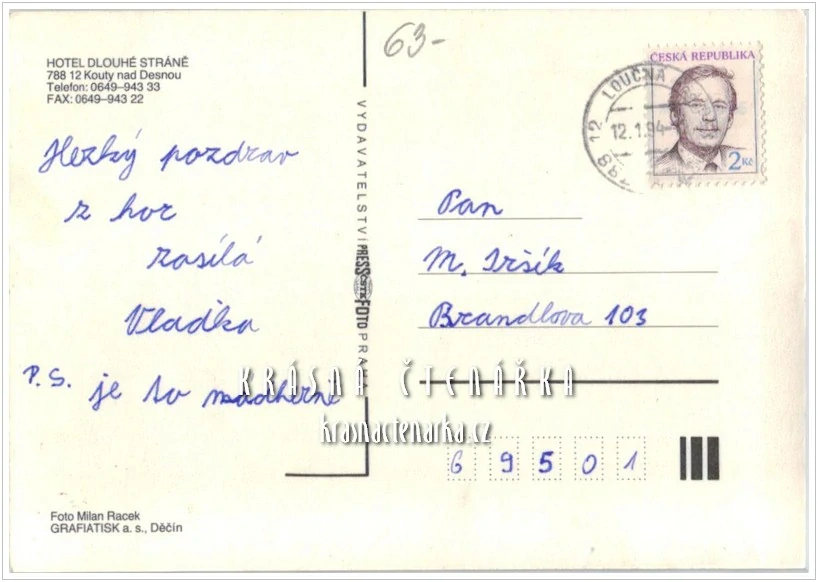 63-
HOTEL DLOUHÉ STRÁNĚ
788 12 Kouty nad Desnou
Telefon: 0649–943 33
FAX: 0649–943 22
Hezký pozdrav
z hor
zasílá
Vlaďka
P.S. je to nádherné
Foto Milan Racek
GRAFIATISK a. s., Děčín
VYDAVATELSTVÍ PRESSFOTO PRAHA
ČSTK
ČESKÁ REPUBLIKA
2 Kč
788 12 LOUČNÁ
12.1.94
Pan
M. Iršík
Brandlova 103
69501
KRÁSNÁ ČTENÁŘKA
krasnactenarka.cz